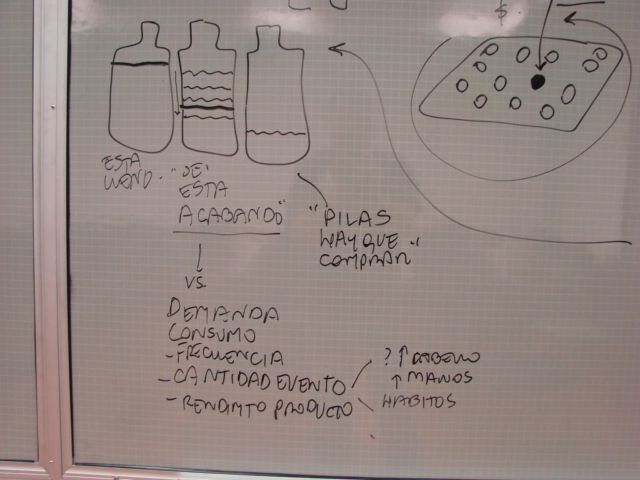 $.
ESTA
LLENO.
"SE
ESTA
ACABANDO"
"PILAS
HAY QUE"
COMPRAR
VS.
DEMANDA
CONSUMO
- FRECUENCIA
- CANTIDAD EVENTO
- RENDIMTO PRODUCTO
? ↑ CABELLO
↑ MANOS
HABITOS